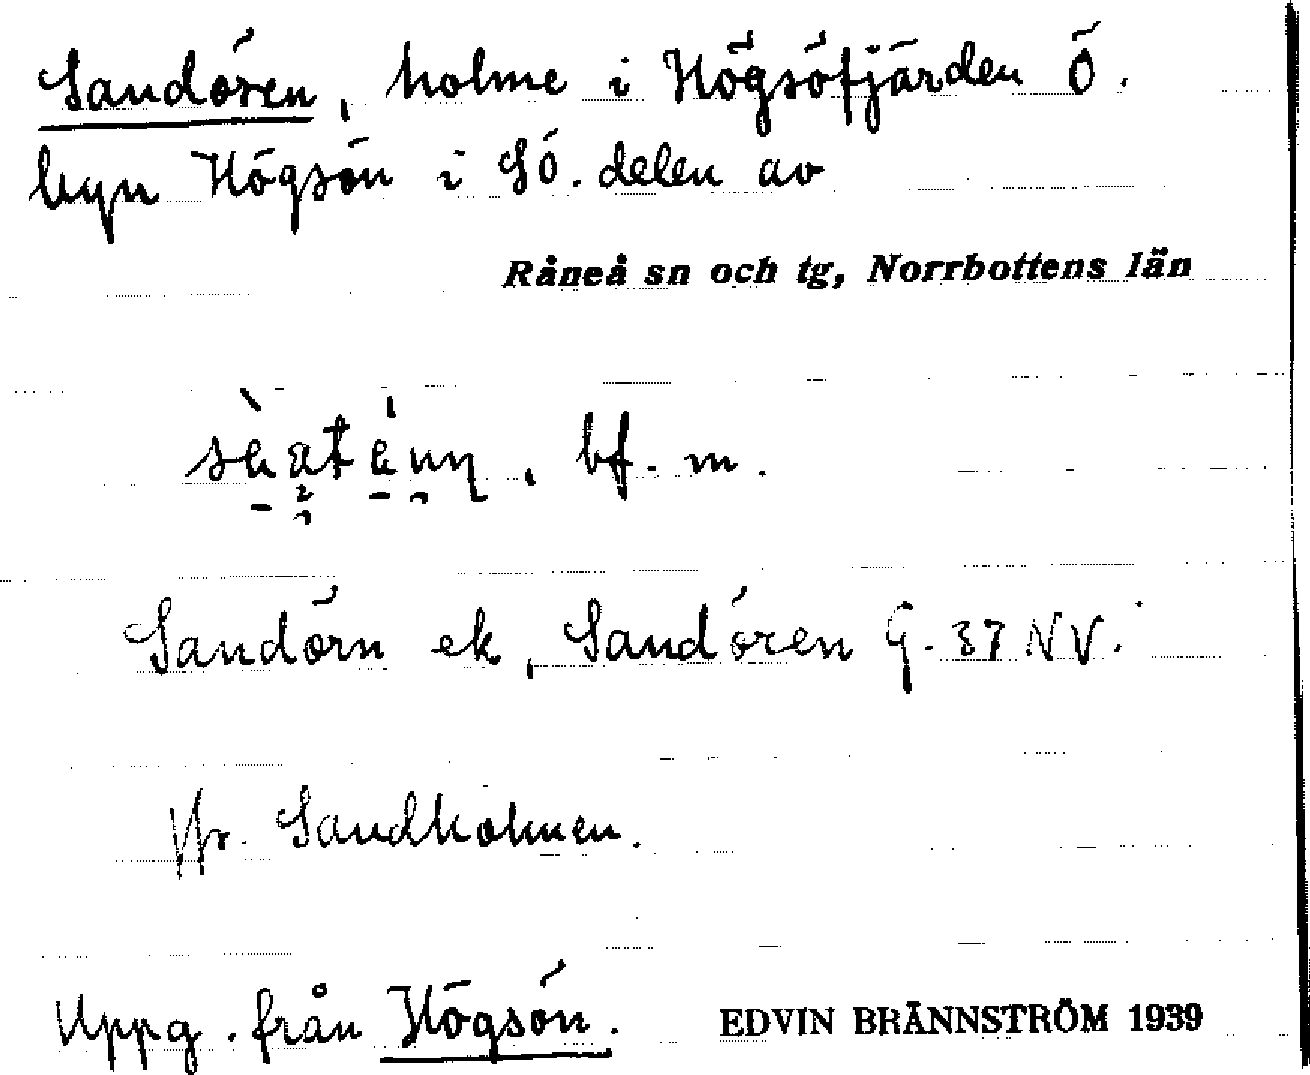 Sandören, holme i Högsöfjärden Ö.
byn Högsön i SÖ. delen av
Råneå sn och tg, Norrbottens län
bf. m.
Sandörn ek, Sandören G. 37 NV.
Jfr. Sandholmen.
Uppg. från Högsön. EDVIN BRÄNNSTRÖM 1939